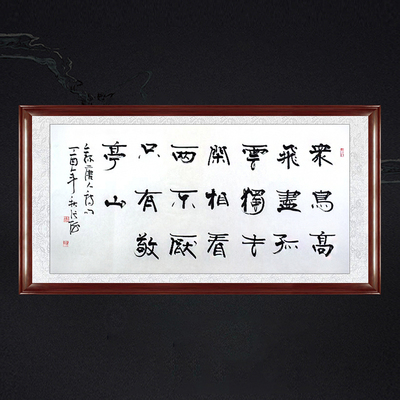 眾鳥高
飛盡孤
雲獨去
閑相看
兩不厭
只有敬
亭山
唐人詩
丁酉年秋